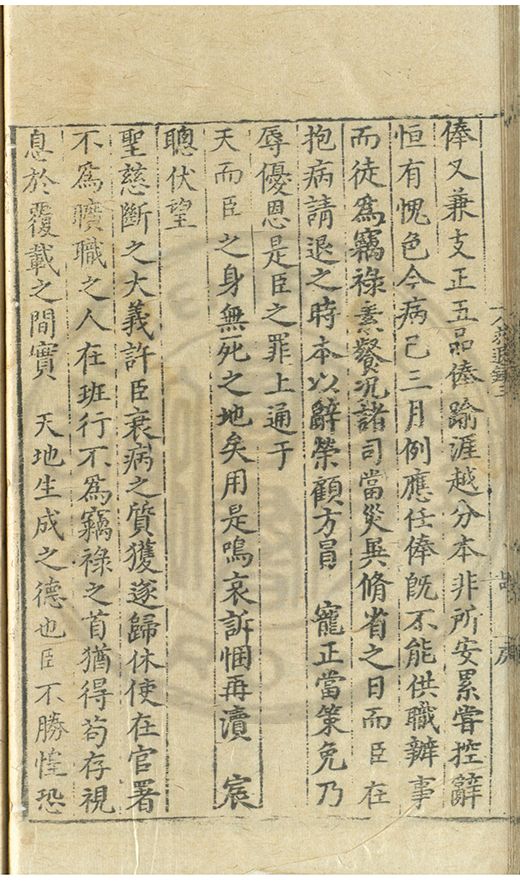 俸又兼支正五品俸踰涯越分本非所安累嘗控辭
恒有愧色今病已三月例應住俸旣不能供職辦事
而徒爲竊祿素餐况諸司當災異脩省之日而臣在
抱病請退之時本以辭榮顧方員 寵正當策免乃
辱優恩是臣之罪上通于
天而臣之身無死之地矣用是鳴哀訴悃再瀆 宸
聰伏望
聖慈斷之大義許臣衰病之質獲遂歸休使在官署
不爲曠職之人在班行不爲竊祿之首猶得苟存視
息於覆載之間實 天地生成之德也臣不勝惶恐